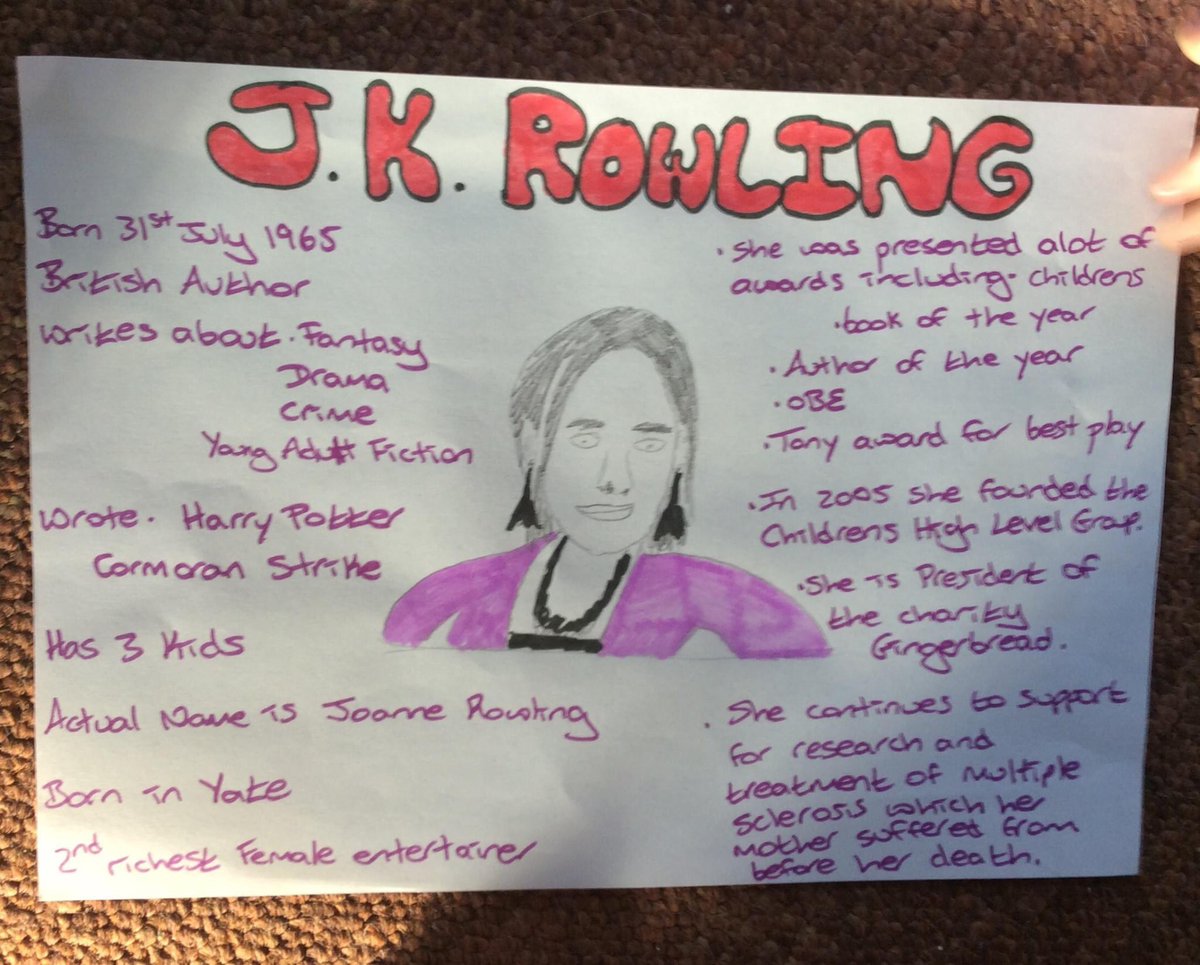 J.K. ROWLING
Born 31st July 1965
British Author
Writes about. Fantasy
Drama
Crime
Young Adult Fiction
Wrote. Harry Potter
Cormoran Strike
Has 3 Kids
Actual Name is Joanne Rowling
Born in Yate
2nd richest Female entertainer
. She was presented alot of
awards including. childrens
.book of the year
. Author of the year
. OBE
. Tony award for best play
. In 2005 she founded the
Childrens High Level Group.
. She is President of
the charity
Gingerbread.
. She continues to support
for research and
treatment of multiple
sclerosis which her
mother suffered from
before her death.